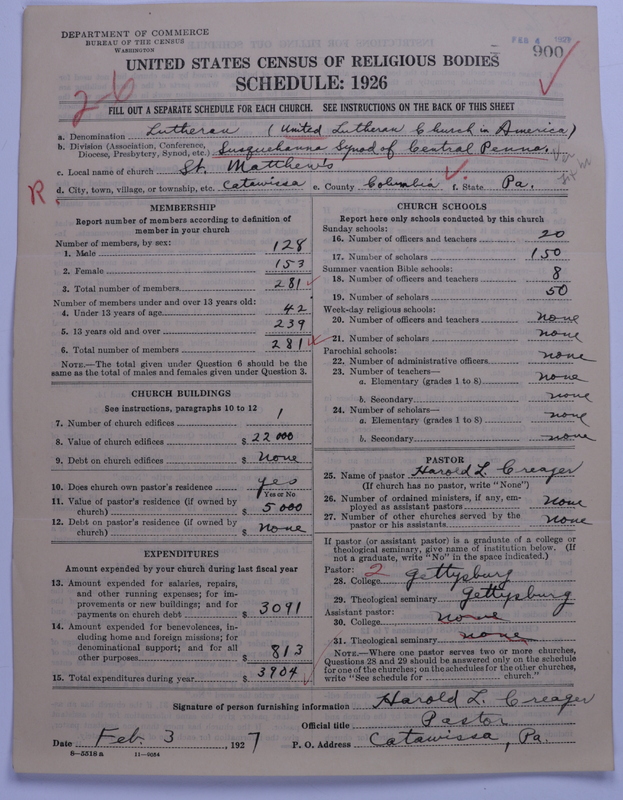 DEPARTMENT OF COMMERCE
BUREAU OF THE CENSUS
WASHINGTON
FEB 4 1927
900
UNITED STATES CENSUS OF RELIGIOUS BODIES
SCHEDULE: 1926
2-6
FILL OUT A SEPARATE SCHEDULE FOR EACH CHURCH. SEE INSTRUCTIONS ON THE BACK OF THIS SHEET
a. Denomination Lutheran (United Lutheran Church in America)
b. Division (Association, Conference, Diocese, Presbytery, Synod, etc.) Susquehanna Synod of Central Penna.
c. Local name of church St. Matthew's
R
d. City, town, village, or township, etc. Catawissa e. County Columbia f. State Pa.
MEMBERSHIP
Report number of members according to definition of
member in your church
Number of members, by sex:
1. Male 128
2. Female 153
3. Total number of members 281
Number of members under and over 13 years old:
4. Under 13 years of age 42
5. 13 years old and over 239
6. Total number of members 281
NOTE.—The total given under Question 6 should be
the same as the total of males and females given under Question 3.
CHURCH BUILDINGS
See instructions, paragraphs 10 to 12
7. Number of church edifices 1
8. Value of church edifices $ 22000
9. Debt on church edifices $ None
10. Does church own pastor's residence yes
Yes or No
11. Value of pastor's residence (if owned by
church) $ 5000
12. Debt on pastor's residence (if owned by
church) $ None
EXPENDITURES
Amount expended by your church during last fiscal year
13. Amount expended for salaries, repairs,
and other running expenses; for im-
provements or new buildings; and for
payments on church debt $ 3091
14. Amount expended for benevolences, in-
cluding home and foreign missions; for
denominational support; and for all
other purposes $ 813
15. Total expenditures during year $ 3904
CHURCH SCHOOLS
Report here only schools conducted by this church
Sunday schools:
16. Number of officers and teachers 20
17. Number of scholars 150
Summer vacation Bible schools:
18. Number of officers and teachers 8
19. Number of scholars 50
Week-day religious schools:
20. Number of officers and teachers none
21. Number of scholars none
Parochial schools:
22. Number of administrative officers none
23. Number of teachers—
a. Elementary (grades 1 to 8) none
b. Secondary none
24. Number of scholars—
a. Elementary (grades 1 to 8) none
b. Secondary none
PASTOR
25. Name of pastor Harold L. Creager
(If church has no pastor, write "None")
26. Number of ordained ministers, if any, em-
ployed as assistant pastors none
27. Number of other churches served by the
pastor or his assistants none
If pastor (or assistant pastor) is a graduate of a college or
theological seminary, give name of institution below. (If
not a graduate, write "No" in the space indicated.)
Pastor: 2
28. College Gettysburg
29. Theological seminary Gettysburg
Assistant pastor:
30. College none
31. Theological seminary none
NOTE.—Where one pastor serves two or more churches,
Questions 28 and 29 should be answered only on the schedule
for one of the churches; on the schedules for the other churches,
write "See schedule for church."
Signature of person furnishing information Harold L. Creager
Official title Pastor
Date Feb. 3, 1927 P. O. Address Catawissa, Pa.
8—5518 a 11—9064